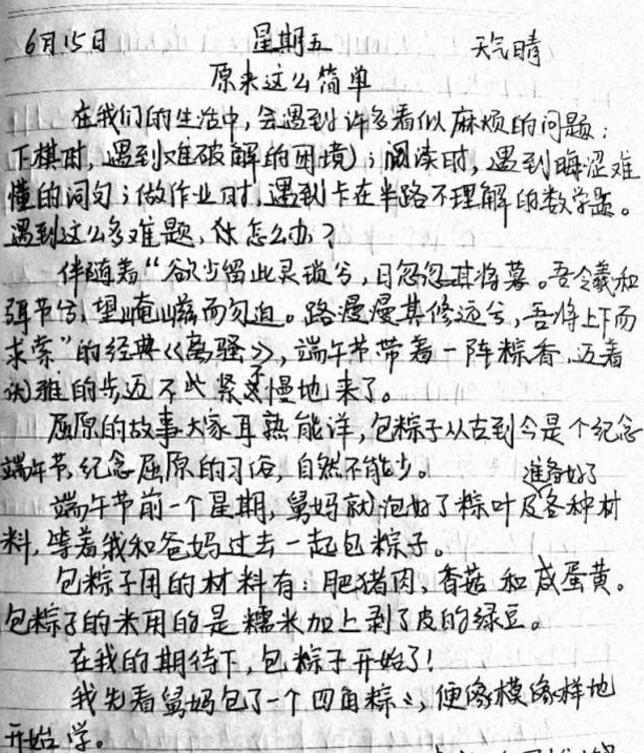 6月15日 星期五 天气晴
原来这么简单
在我们的生活中,会遇到许多看似麻烦的问题:
下棋时,遇到难破解的困境;阅读时,遇到晦涩难
懂的词句;做作业时,遇到卡在半路不理解的数学题。
遇到这么多难题,你怎么办?
伴随着“欲少留此灵琐兮,日忽忽其将暮。吾令羲和
弭节兮,望崦嵫而勿迫。路漫漫其修远兮,吾将上下而
求索”的经典《离骚》,端午节带着一阵粽香,迈着
优雅的步迈不此紧不慢地来了。
屈原的故事大家耳熟能详,包粽子从古到今是个纪念
端午节,纪念屈原的习俗,自然不能少。
端午节前一个星期,舅妈就泡好了粽叶及准备好了各种材
料,等着我和爸妈过去一起包粽子。
包粽子用的材料有:肥猪肉、香菇和咸蛋黄。
包粽子的米用的是糯米加上剥了皮的绿豆。
在我的期待下,包粽子开始了!
我先看舅妈包了一个四角粽,便像模像样地
开始学。